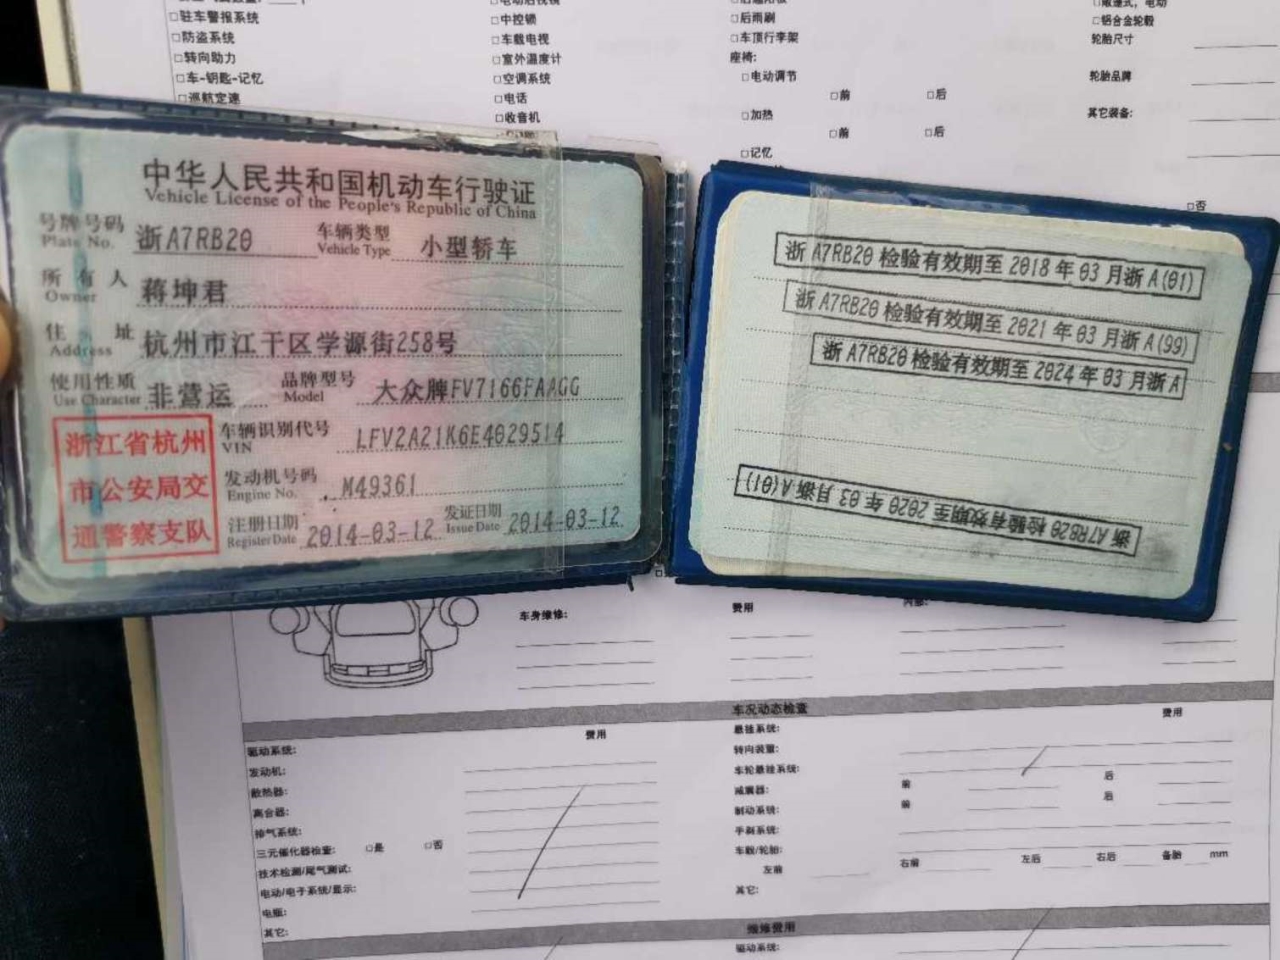 □驻车警报系统
□防盗系统
□转向助力
□车-钥匙-记忆
□巡航定速
□中控锁
□车载电视
□室外温度计
□空调系统
□电话
□收音机
□后雨刷
□车顶行李架
座椅:
□电动调节
□前 □后
□加热
□前 □后
□记忆
□铝合金轮毂
轮胎尺寸
轮胎品牌
其它装备:
□否
中华人民共和国机动车行驶证
Vehicle License of the People's Republic of China
号牌号码 浙A7RB20 车辆类型 小型轿车
Plate No. Vehicle Type
所有人 蒋坤君
Owner
住址 杭州市江干区学源街258号
Address
使用性质 非营运 品牌型号 大众牌FV7166FAAGG
Use Character Model
浙江省杭州
市公安局交
通警察支队
车辆识别代号 LFV2A21K6E4029514
VIN
发动机号码 M49361
Engine No.
注册日期 2014-03-12 发证日期 2014-03-12
Register Date Issue Date
浙A7RB20检验有效期至2018年03月浙A(01)
浙A7RB20检验有效期至2021年03月浙A(99)
浙A7RB20检验有效期至2024年03月浙A
浙A7RB20检验有效期至2020年03月浙A(01)
车身维修: 费用
车况动态检查
费用 费用
驱动系统:
发动机:
散热器:
离合器:
排气系统:
三元催化器检查: □是 □否
技术检测/尾气测试:
电动/电子系统/显示:
电瓶:
其它:
悬挂系统:
转向装置:
车轮悬挂系统:
减震器: 前 后
制动系统: 前 后
手刹系统:
车毂/轮胎:
左前 右前 左后 右后 备胎 mm
其它:
维修费用
驱动系统: